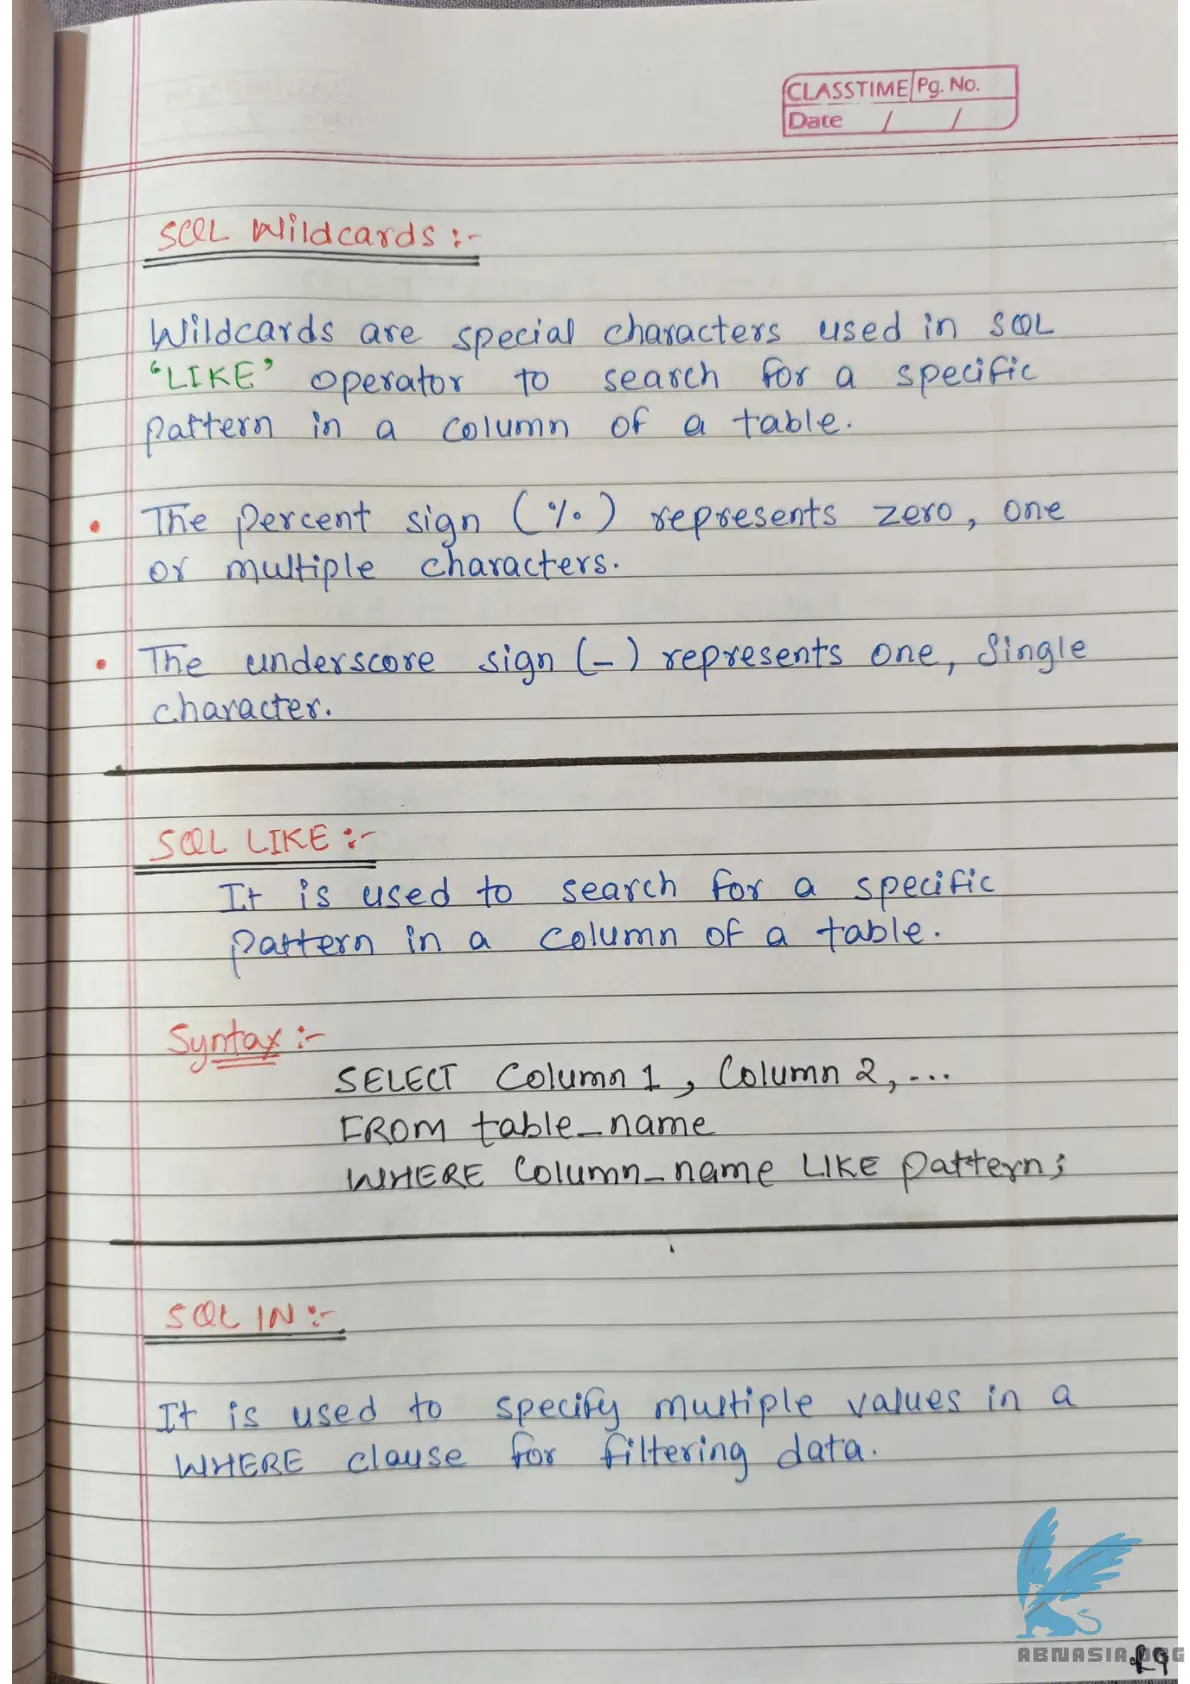 CLASSTIME Pg. No.
Date / /
SQL Wildcards :-
Wildcards are special characters used in SQL
'LIKE' operator to search for a specific
pattern in a column of a table.
• The percent sign (%) represents zero, one
or multiple characters.
• The underscore sign (_) represents one, Single
character.
SQL LIKE :-
It is used to search for a specific
pattern in a column of a table.
Syntax :-
SELECT Column 1 , Column 2, ...
FROM table_name
WHERE Column_name LIKE pattern;
SQL IN :-
It is used to specify multiple values in a
WHERE clause for filtering data.
ABNASIA.ORG